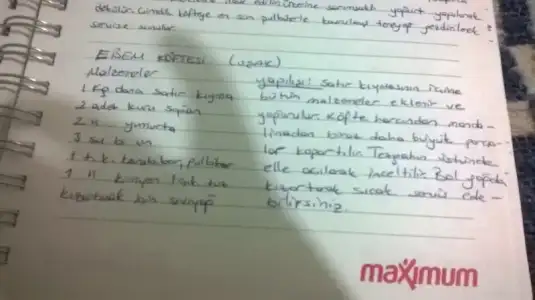 üzerine sarımsaklı yoğurt yapılarak
dökülür. Cimdik köfteye en son pulbiberle kavrulmuş tereyağ gezdirilerek
servise sunulur.
EBEM KÖFTESİ (UŞAK)
Malzemeler
1 Kg dana satır kıyma
2 adet kuru soğan
2 " yumurta
3 su b. un
1 t. k. karabiber, pulbiber
1 " kimyon 1 çk tuz
Kızartmak için sıvıyağ
Yapılışı: Satır kıymasının içine
bütün malzemeler eklenir ve
yoğurulur. Köfte harcından manda-
linadan biraz daha büyük parça-
lar kopartılır. Tezgahın üstünde
elle açılarak inceltilir. Bol yağda
kızartarak sıcak servis ede-
bilirsiniz.
maximum